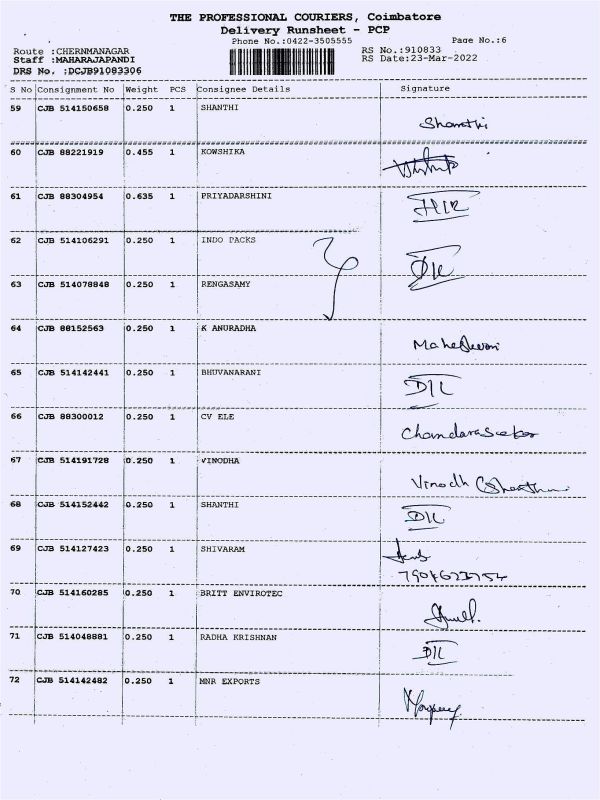 THE PROFESSIONAL COURIERS, Coimbatore
Delivery Runsheet - PCP
Phone No.:0422-3505555
Page No.:6
Route :CHERNMANAGAR
Staff :MAHARAJAPANDI
DRS No. :DCJB91083306
RS No.:910833
RS Date:23-Mar-2022
S No Consignment No Weight PCS Consignee Details Signature
59 CJB 514150658 0.250 1 SHANTHI Shanthi
60 CJB 88221919 0.455 1 KOWSHIKA
61 CJB 88304954 0.635 1 PRIYADARSHINI
62 CJB 514106291 0.250 1 INDO PACKS
63 CJB 514078848 0.250 1 RENGASAMY
64 CJB 88152563 0.250 1 K ANURADHA
65 CJB 514142441 0.250 1 BHUVANARANI DIL
66 CJB 88300012 0.250 1 CV ELE
67 CJB 514191728 0.250 1 VINODHA Vinodh
68 CJB 514152442 0.250 1 SHANTHI DIL
69 CJB 514127423 0.250 1 SHIVARAM
70 CJB 514160285 0.250 1 BRITT ENVIROTEC
71 CJB 514048881 0.250 1 RADHA KRISHNAN DIL
72 CJB 514142482 0.250 1 MNR EXPORTS